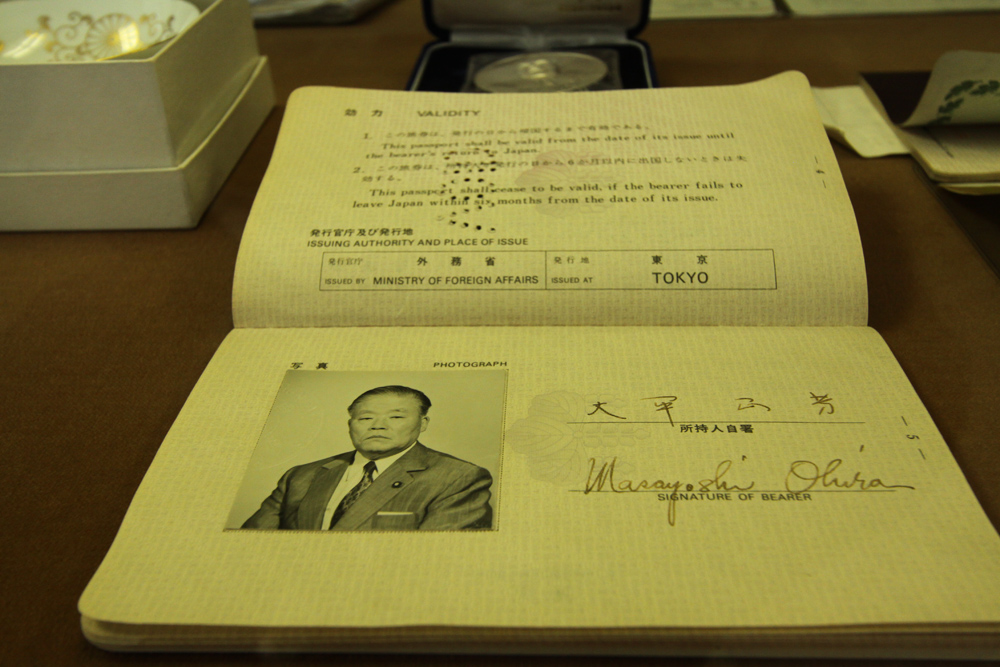 効 力 VALIDITY
1. この旅券は、発行の日から帰国するまで有効である。
This passport shall be valid from the date of its issue until
the bearer's return to Japan.
2. この旅券は、発行の日から6か月以内に出国しないときは失
効する。
This passport shall cease to be valid, if the bearer fails to
leave Japan within six months from the date of its issue.
発行官庁及び発行地
ISSUING AUTHORITY AND PLACE OF ISSUE
発行官庁 外 務 省 発 行 地 東 京
ISSUED BY MINISTRY OF FOREIGN AFFAIRS ISSUED AT TOKYO
— 4 —
写 真 PHOTOGRAPH
大平正芳
所持人自署
Masayoshi Ohira
SIGNATURE OF BEARER
— 5 —